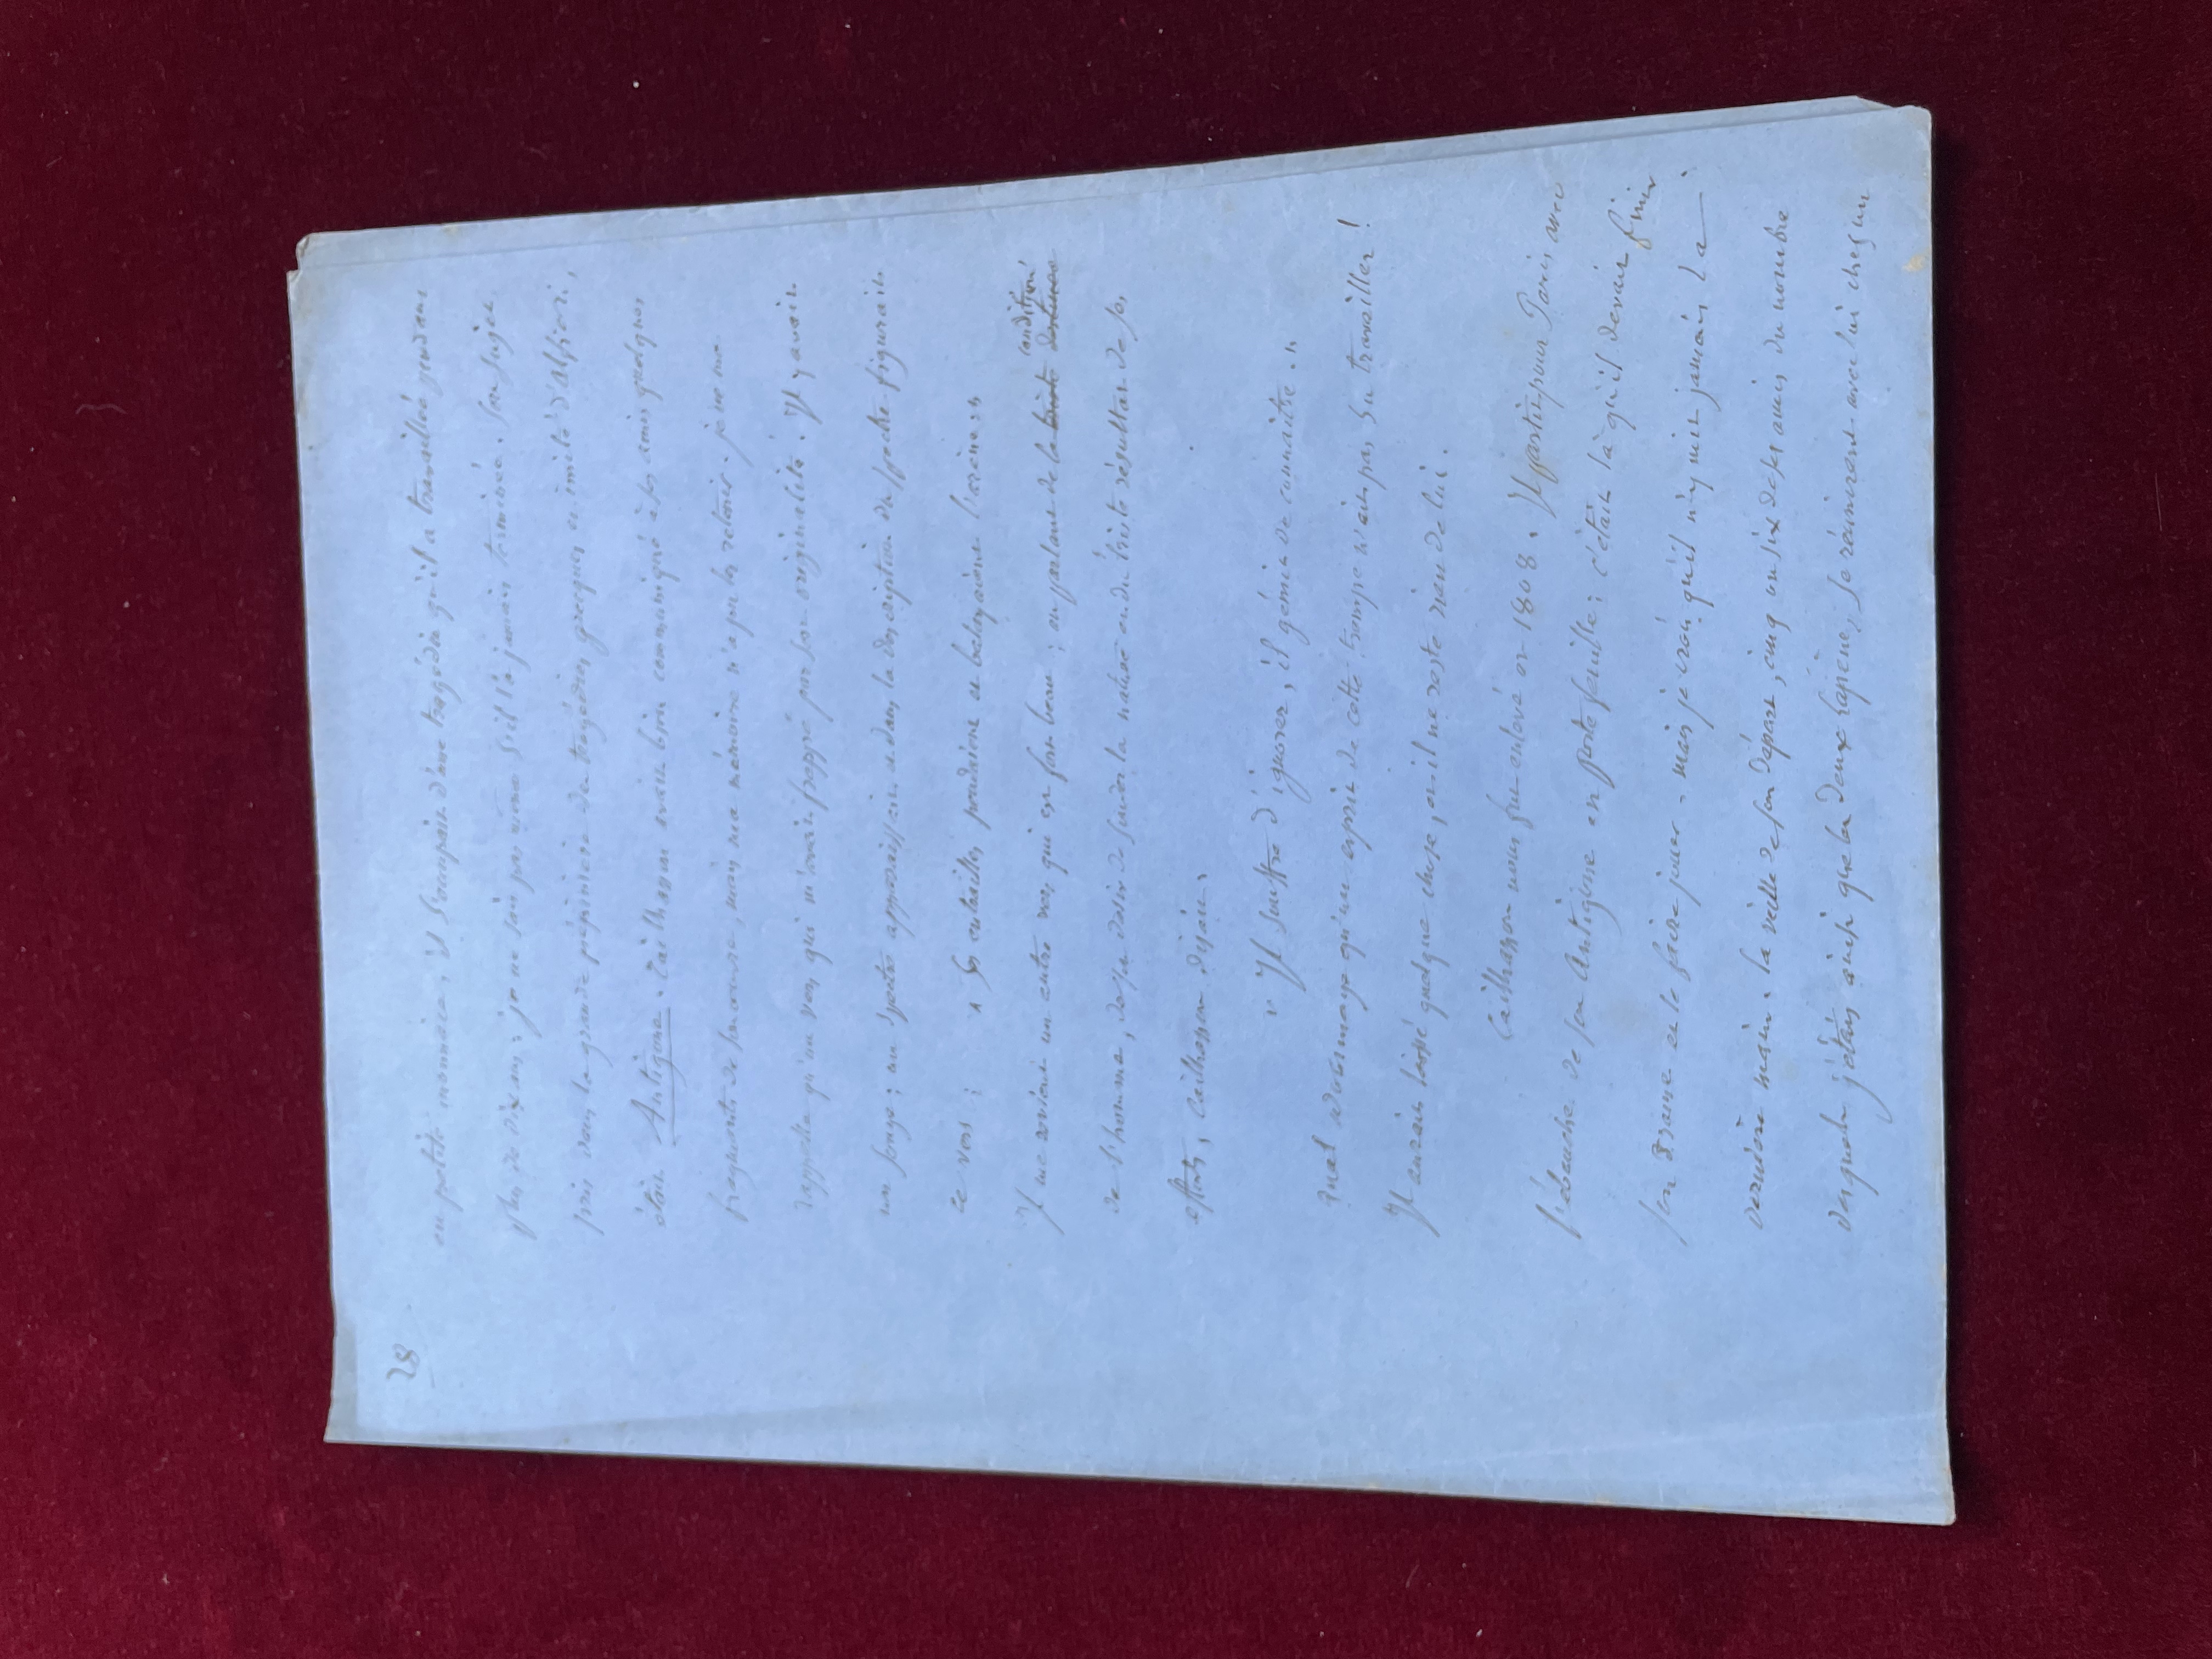 28
en petite monnaie; il s'occupait d'une tragédie qu'il a travaillée pendant
plus de dix ans; je ne sais pas même s'il l'a jamais terminée. Son sujet
pris dans la grande pépinière des tragédies grecques et imité d'Alfieri,
était Antigone. Cailhasson avait bien communiqué à ses amis quelques
fragments de son œuvre, mais ma mémoire n'a pu les retenir. je ne me
rappelle qu'un vers qui m'avait frappé par son originalité. Il y avait
un songe; un spectre apparaissait et dans la description du spectre figurait
ce vers: « Ses entrailles pendaient et balayaient l'arène; »
Il me revient un autre vers qui est fort beau; en parlant de la triste destinée condition
de l'homme, de son désir de sonder la nature et du triste résultat de ses
efforts, Cailhasson disait:
« Il souffre d'ignorer, il gémit de connaître. »
Quel dommage qu'un esprit de cette trempe n'ait pas su travailler!
Il aurait laissé quelque chose, et il ne reste rien de lui.
Cailhasson nous fut enlevé en 1808. Il partit pour Paris avec
l'ébauche de son Antigone en portefeuille; c'était là qu'il devait finir
son Drame et le faire jouer - mais je crois qu'il n'y mit jamais la
dernière main. la veille de son départ, cinq ou six de ses amis du nombre
desquels j'étais ainsi que les deux Lapène, se réunirent avec lui chez un